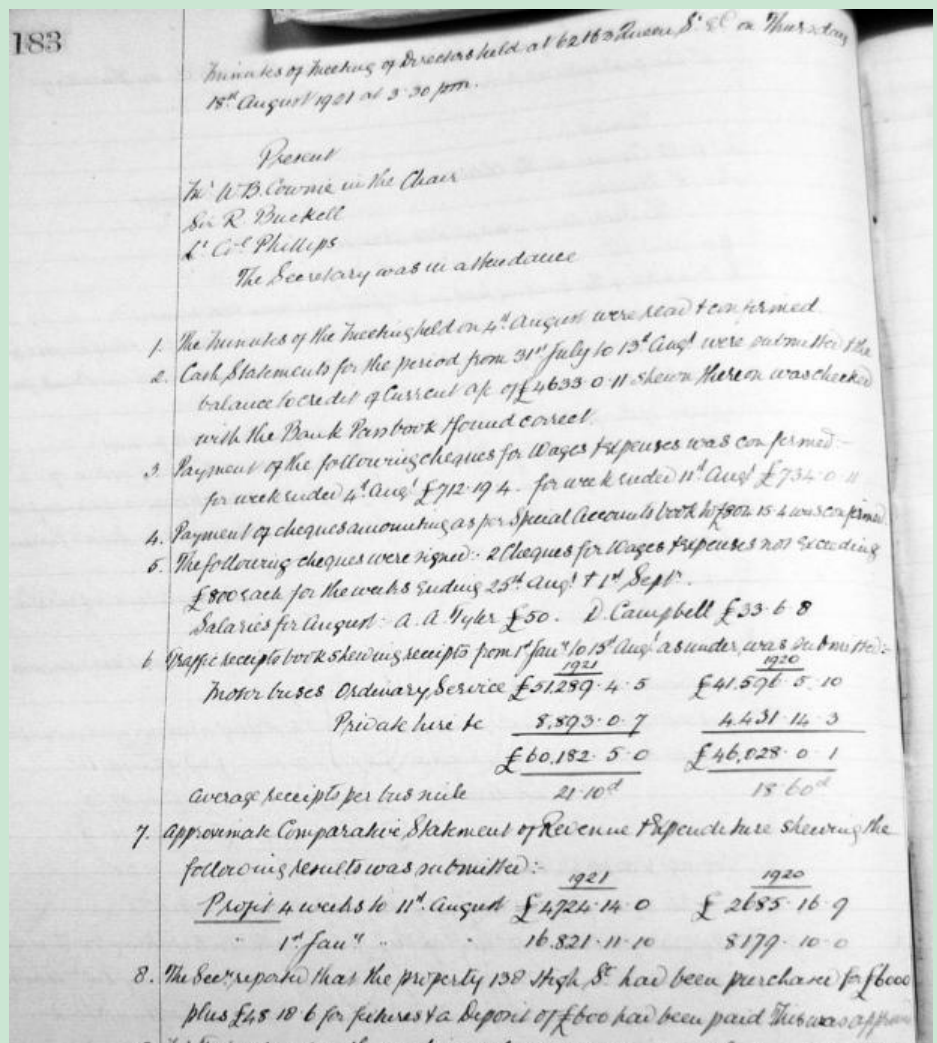 183
Minutes of Meeting of Directors held at 62 & 63 Queen St E.C. on Thursday
18th August 1921 at 3.30 pm.
Present
Mr W.B. Cownie in the Chair
Sir R. Buckell
Lt Col Phillips
The Secretary was in attendance
1. The Minutes of the Meeting held on 4th August were read & confirmed
2. Cash Statements for the period from 31st July to 13th Augt were submitted & the
balance to credit of Current a/c of £4633.0.11 shewn thereon was checked
with the Bank Passbook & found correct.
3. Payment of the following cheques for Wages & Expenses was confirmed:-
for week ended 4th Augt £712.19.4. for week ended 11th Augt £734.0.11
4. Payment of cheques amounting as per Special Accounts book to £804.15.4 was confirmed.
5. The following cheques were signed:- 2 Cheques for Wages & Expenses not Exceeding
£800 each for the weeks Ending 25th Augt & 1st Septr.
Salaries for August:- A.A. Tyler £50. D. Campbell £33.6.8
6. Traffic receipts book shewing receipts from 1st Jany to 15th Augt as under, was submitted:-
1921 1920
Motor buses Ordinary Service £51,289.4.5 £41,596.5.10
Private hire &c 8,893.0.7 4,431.14.3
£60,182.5.0 £46,028.0.1
Average receipts per bus mile 21.10d 18.60d
7. Approximate Comparative Statement of Revenue & Expenditure shewing the
following results was submitted:-
1921 1920
Profit 4 weeks to 11th August £4724.14.0 £2685.16.9
" 1st Jany " " 16,821.11.10 8179.10.0
8. The Secy reported that the property 138 High St had been purchased for £6000
plus £48.18.6 for fixtures & a Deposit of £600 had been paid This was